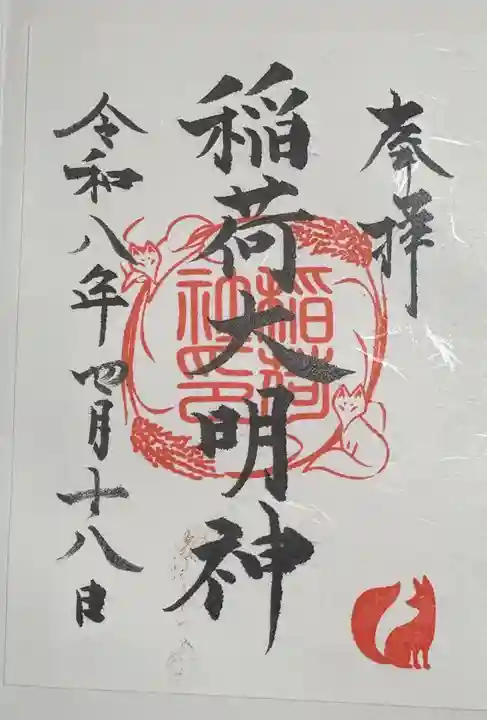 奉拝
稲荷大明神
稲荷
社印
令和八年四月十八日